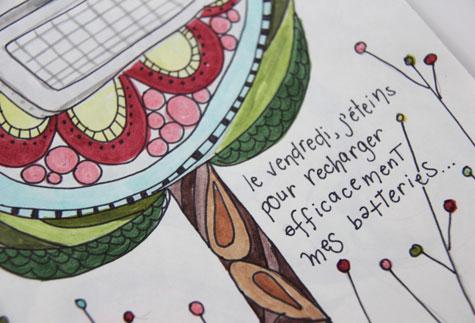 le vendredi, j'éteins
pour recharger
efficacement
mes batteries...